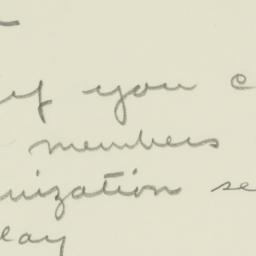 if you c
members
nization se
lay